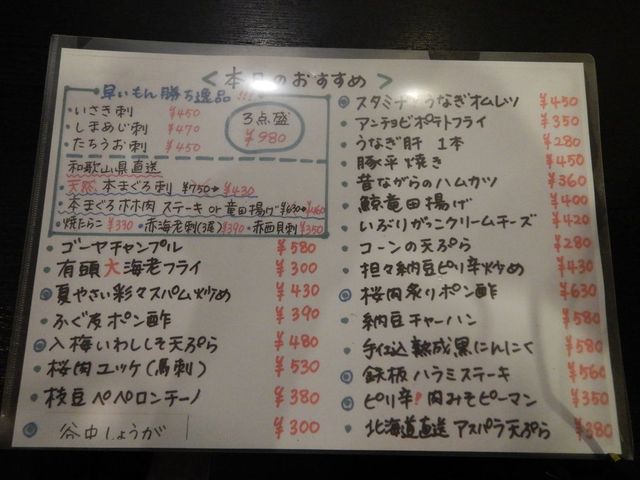 <本日のおすすめ>
早いもん勝ち逸品!!!
・いさき刺 ¥450
・しまあじ刺 ¥470
・たちうお刺 ¥450
3点盛
¥980
和歌山県直送
・天然 本まぐろ刺 ¥750→¥430
・本まぐろホホ肉 ステーキ or 竜田揚げ ¥630→¥460
・焼たらこ ¥330 ・赤海老刺(3尾) ¥390 ・赤西貝刺 ¥350
・ゴーヤチャンプル ¥580
・有頭大海老フライ ¥300
◎夏やさい彩々スパム炒め ¥430
・ふぐ皮ポン酢 ¥390
◎入梅いわししそ天ぷら ¥480
・桜肉ユッケ(馬刺) ¥530
・枝豆ペペロンチーノ ¥380
◎谷中しょうが ¥300
◎スタミナ うなぎオムレツ ¥450
・アンチョビポテトフライ ¥350
・うなぎ肝 1本 ¥280
・豚平焼き ¥450
・昔ながらのハムカツ ¥360
・鯨竜田揚げ ¥400
・いぶりがっこクリームチーズ ¥420
・コーンの天ぷら ¥280
・担々納豆ピリ辛炒め ¥430
◎桜肉炙りポン酢 ¥630
・納豆チャーハン ¥580
・手仕込熟成黒にんにく ¥580
◎鉄板ハラミステーキ ¥560
◎ピリ辛!肉みそピーマン ¥350
・北海道直送 アスパラ天ぷら ¥380